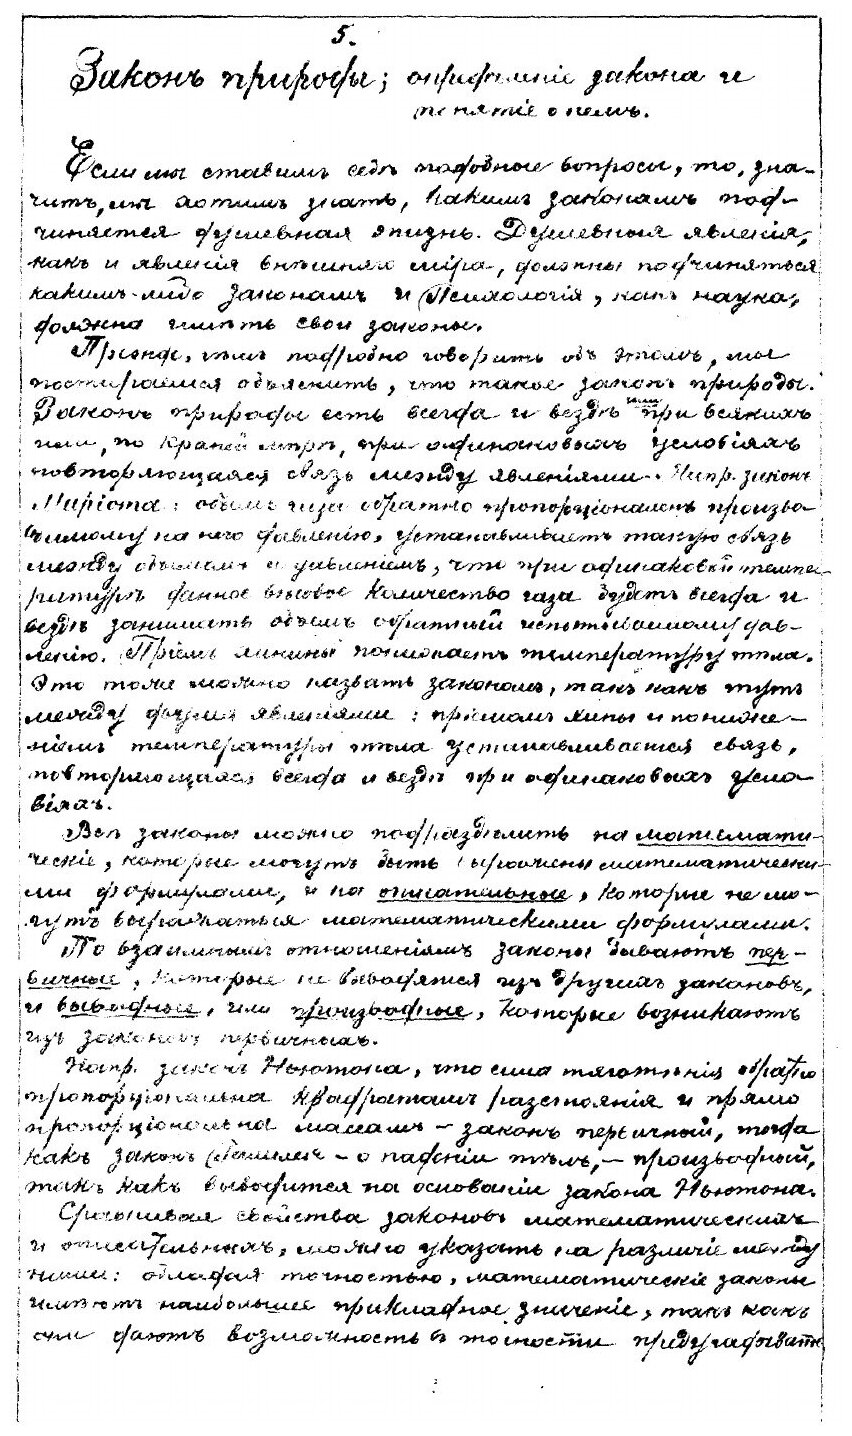 5.
Законъ природы; опредѣленіе закона и
понятіе о немъ.
Если мы ставимъ себѣ подобные вопросы, то, зна-
читъ, мы хотимъ знать, какимъ законамъ под-
чиняется душевная жизнь. Душевныя явленія,
какъ и явленія внѣшняго міра, должны подчиняться
какимъ-либо законамъ и Психологія, какъ наука,
должна имѣть свои законы.
Прежде, чѣмъ подробно говорить объ этомъ, мы
постараемся объяснить, что такое законъ природы.
Законъ природы есть всегда и вездѣ при всякихъ
или, по крайней мѣрѣ, при одинаковыхъ условіяхъ
повторяющаяся связь между явленіями. Напр. законъ
Маріота: объемъ газа обратно пропорціоналенъ произво-
димому на него давленію, устанавливаетъ такую связь
между объемомъ и давленіемъ, что при одинаковой темпе-
ратурѣ данное вѣсовое количество газа будетъ всегда и
вездѣ занимать объемъ обратный испытываемому дав-
ленію. Пріемъ хинины понижаетъ температуру тѣла.
Это тоже можно назвать закономъ, такъ какъ тутъ
между двумя явленіями: пріемомъ хины и пониже-
ніемъ температуры тѣла устанавливается связь,
повторяющаяся всегда и вездѣ при одинаковыхъ усло-
віяхъ.
Всѣ законы можно подраздѣлить на математи-
ческіе, которые могутъ быть выражены математически-
ми формулами, и на описательные, которые не мо-
гутъ выражаться математическими формулами.
По взаимнымъ отношеніямъ законы бываютъ пер-
вичные, которые не выводятся изъ другихъ законовъ,
и выводные, или производные, которые возникаютъ
изъ законовъ первичныхъ.
Напр. законъ Ньютона, что сила тяготѣнія обратно
пропорціональна квадратамъ разстоянія и прямо
пропорціональна массамъ – законъ первичный, тогда
какъ законъ Галилея – о паденіи тѣлъ, – производный,
такъ какъ выводится на основаніи закона Ньютона.
Сравнивая свойства законовъ математическихъ
и описательныхъ, можно указать на различіе между
ними: обладая точностью, математическіе законы
имѣютъ наибольшее прикладное значеніе, такъ какъ
они даютъ возможность въ точности предугадывать